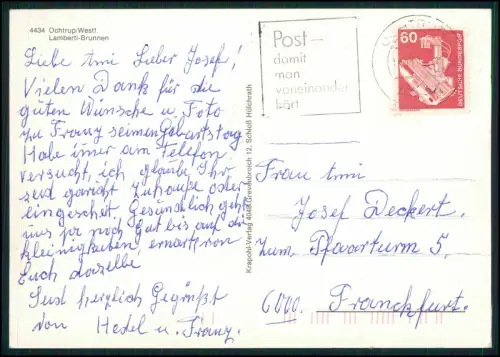 4434 Ochtrup/Westf.
Lamberti-Brunnen
Liebe tmi Lieber Josef!
Vielen Dank für die
guten Wünsche u. Foto
zu Franz seinen Geburtstag
Habe imer am Telefon
versucht, ich glaube Ihr
seid garicht zuhause oder
eingeschet Gesundlich geht
uns ja noch gut bis auf die
kleinigkeiten, erwarte von
Euch dasselbe.
Seid herzlich Gegrüßt
von Hedel u. Franz.
Krapohl-Verlag 4048 Grevenbroich 12, Schloß Hülchrath
Post –
damit
man
voneinander
hört
60
DEUTSCHE BUNDESPOST
Frau tmi
Josef Deckert.
zum Pfarrturm 5.
6000. Franckfurt.